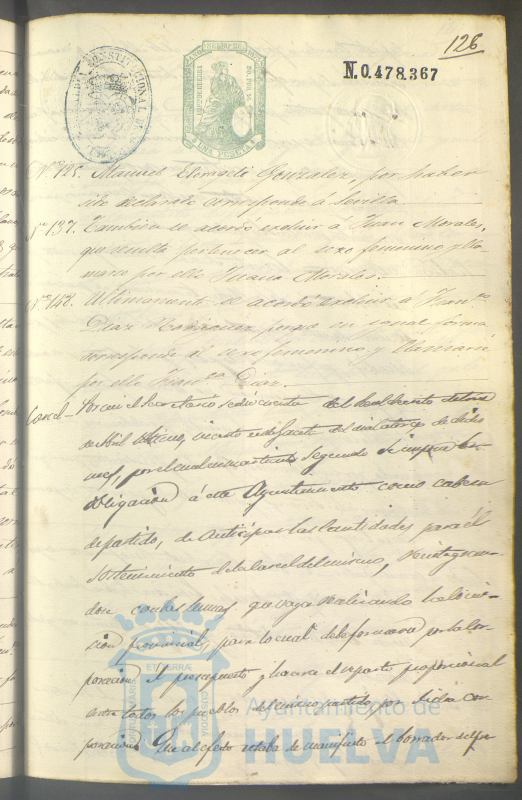 126
N.0.478.367
UNA PESETA
Nº 125. Manuel Gonzalez, por haber
sido declarado corresponde á Sevilla
Nº 137. Tambien se acordó excluir á Juan Morales,
que resulta pertenecer al sexo femenino y lla
marse por ello Juana Morales.
Nº 148. Ultimamente se acordó excluir á Franco
Diaz Rodriguez porque en igual forma
corresponde al sexo femenino y llamarse
por ello Franca Diaz.
Carcel – Por mi el Secretario se dió cuenta del Real Decreto
de Abril ultimo, inserto en la Gaceta del dia catorce de dicho
mes, por el cual en su articulo segundo se impone la
obligacion á este Ayuntamiento como cabeza
de partido, de anticipar las cantidades para el
sostenimiento de la Carcel del mismo, reintegran-
dose con las sumas que vaya realizando la
cion provincial, para lo cual debe formarse por la Cor
poracion el presupuesto y hacerse el reparto proporcional
entre todos los pueblos del mismo partido, por dicha Cor
poracion. Que al efecto estaba de manifiesto el borrador del pre
Ayuntamiento de
HUELVA